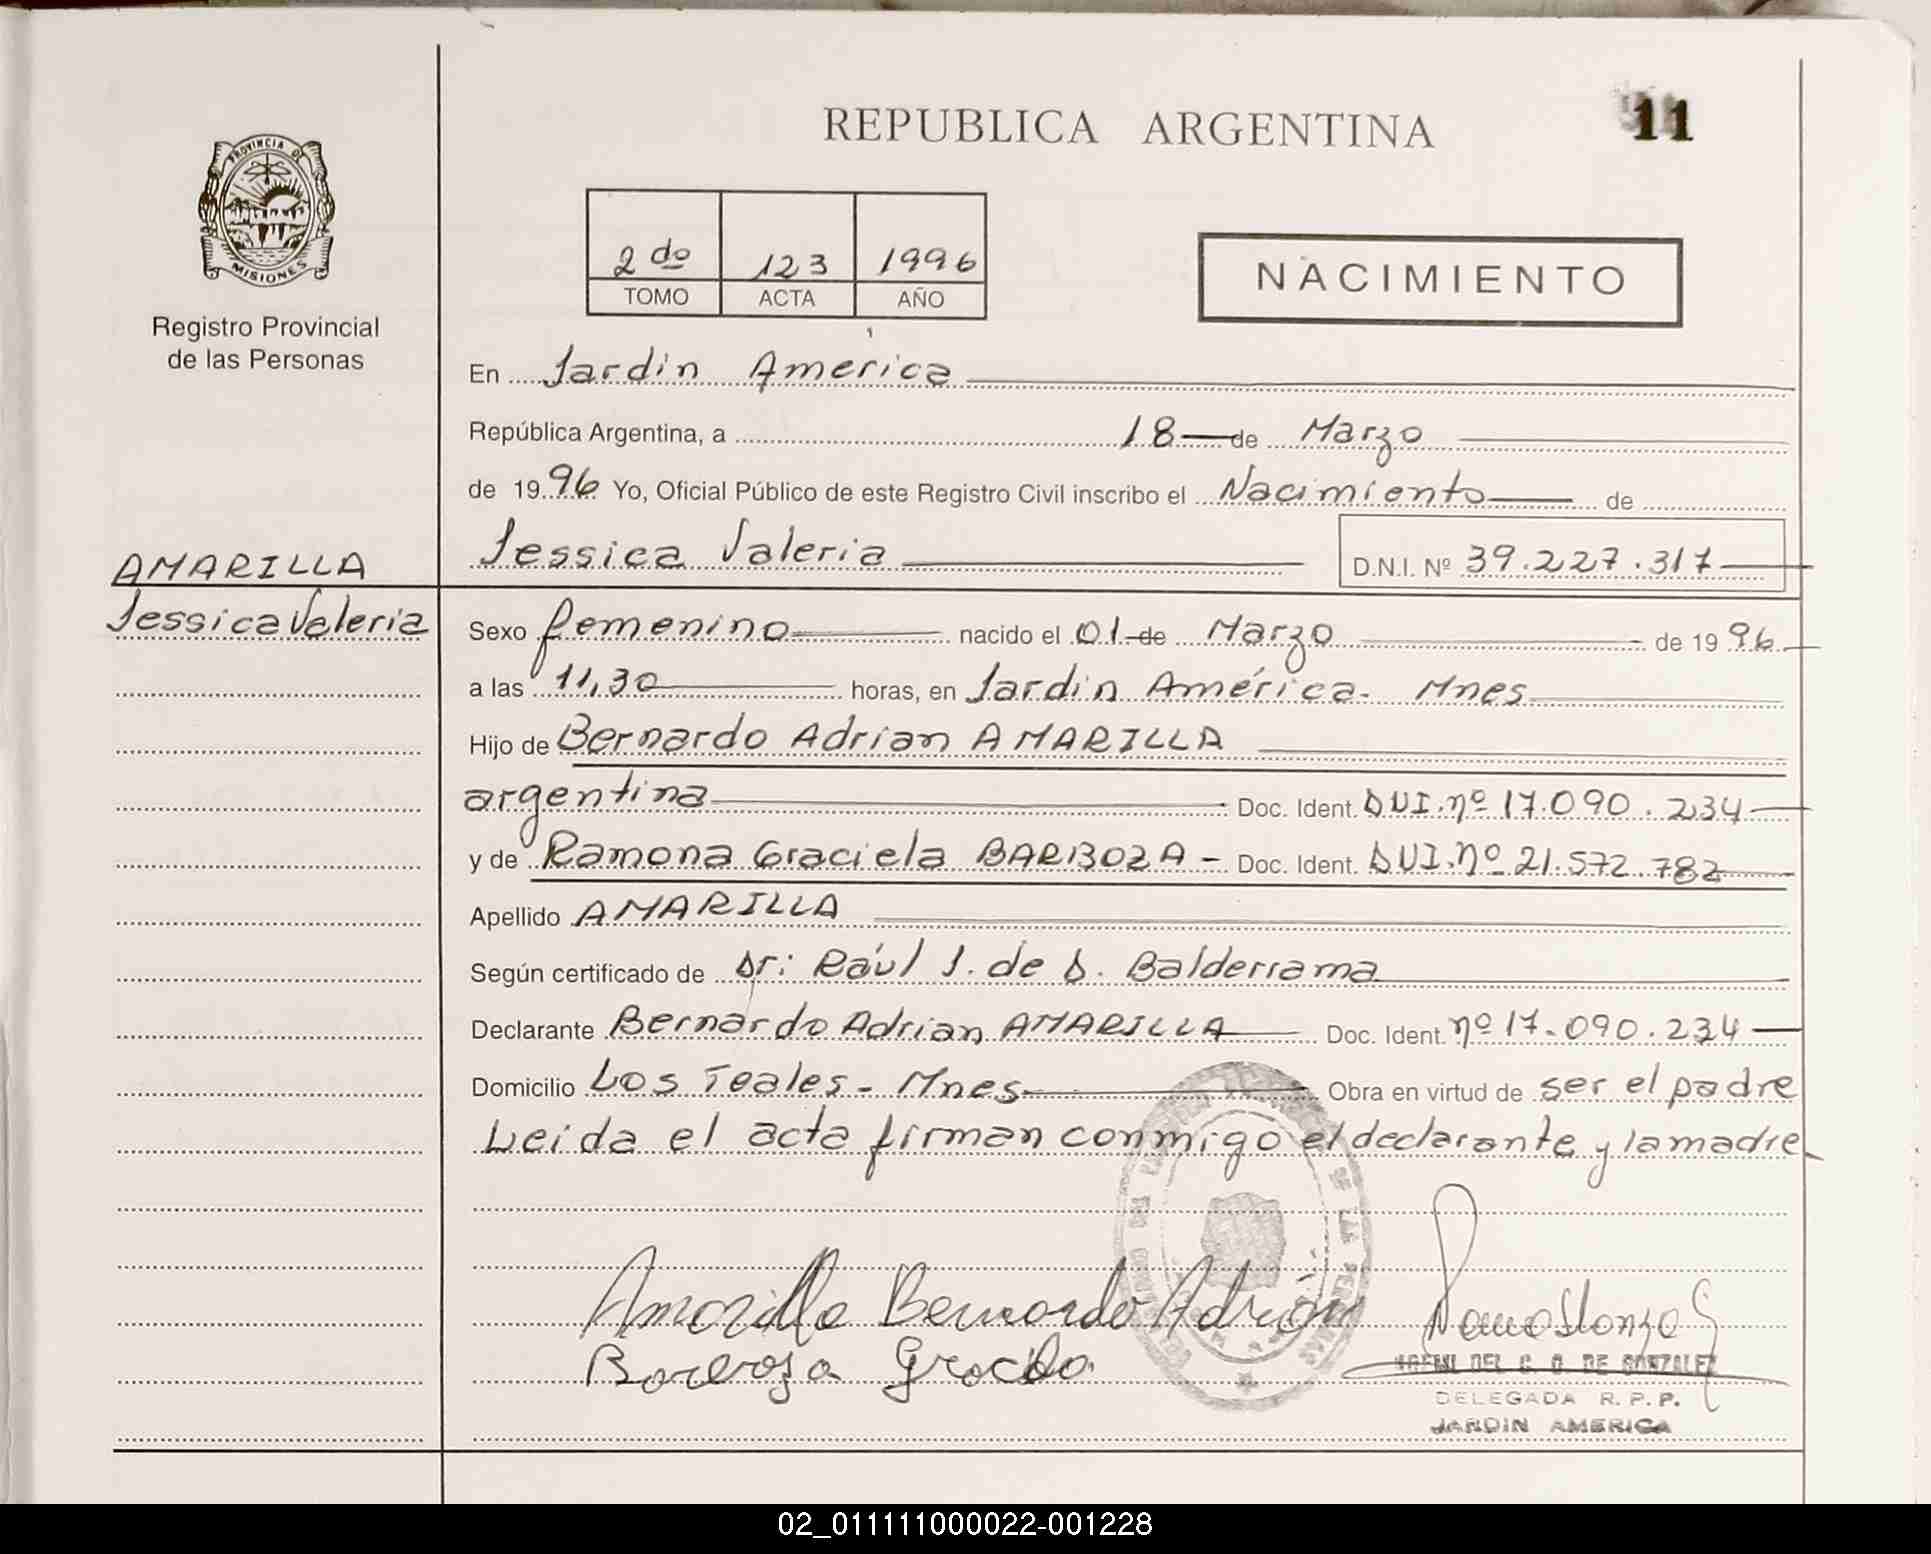 REPUBLICA ARGENTINA
11
PROVINCIA DE
MISIONES
Registro Provincial
de las Personas
2do 123 1996
TOMO ACTA AÑO
NACIMIENTO
En Jardin America
República Argentina, a 18 de Marzo
de 1996 Yo, Oficial Público de este Registro Civil inscribo el Nacimiento de
AMARILLA
Jessica Valeria
Jessica Valeria D.N.I. Nº 39.227.317
Sexo femenino nacido el 01 de Marzo de 1996
a las 11,30 horas, en Jardin América. Mnes
Hijo de Bernardo Adrian AMARILLA
argentina Doc. Ident. DUI.nº 17.090.234
y de Ramona Graciela BARBOZA - Doc. Ident. DUI.nº 21.572.782
Apellido AMARILLA
Según certificado de Dr: Raúl J. de D. Balderrama
Declarante Bernardo Adrian AMARILLA Doc. Ident. nº 17.090.234
Domicilio Los Teales - Mnes Obra en virtud de ser el padre
Leida el acta firman conmigo el declarante y la madre
Amarilla Bernardo Adrián
DEL C. G. DE GONZALEZ
DELEGADA R.P.P.
JARDIN AMERICA
02_011111000022-001228